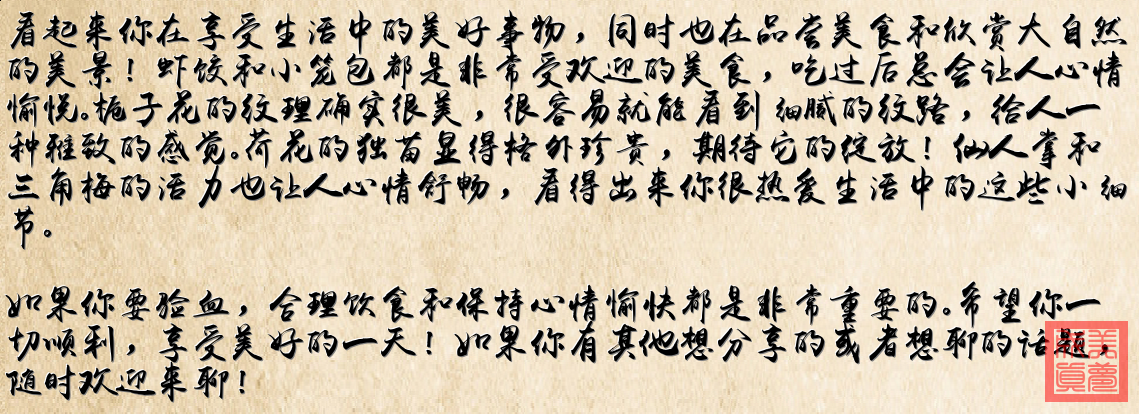 看起来你在享受生活中的美好事物，同时也在品尝美食和欣赏大自然
的美景！虾饺和小笼包都是非常受欢迎的美食，吃过后总会让人心情
愉悦。栀子花的纹理确实很美，很容易就能看到细腻的纹路，给人一
种雅致的感觉。荷花的独苗显得格外珍贵，期待它的绽放！仙人掌和
三角梅的活力也让人心情舒畅，看得出来你很热爱生活中的这些小细
节。
如果你要验血，合理饮食和保持心情愉快都是非常重要的。希望你一
切顺利，享受美好的一天！如果你有其他想分享的或者想聊的话题，
随时欢迎来聊！